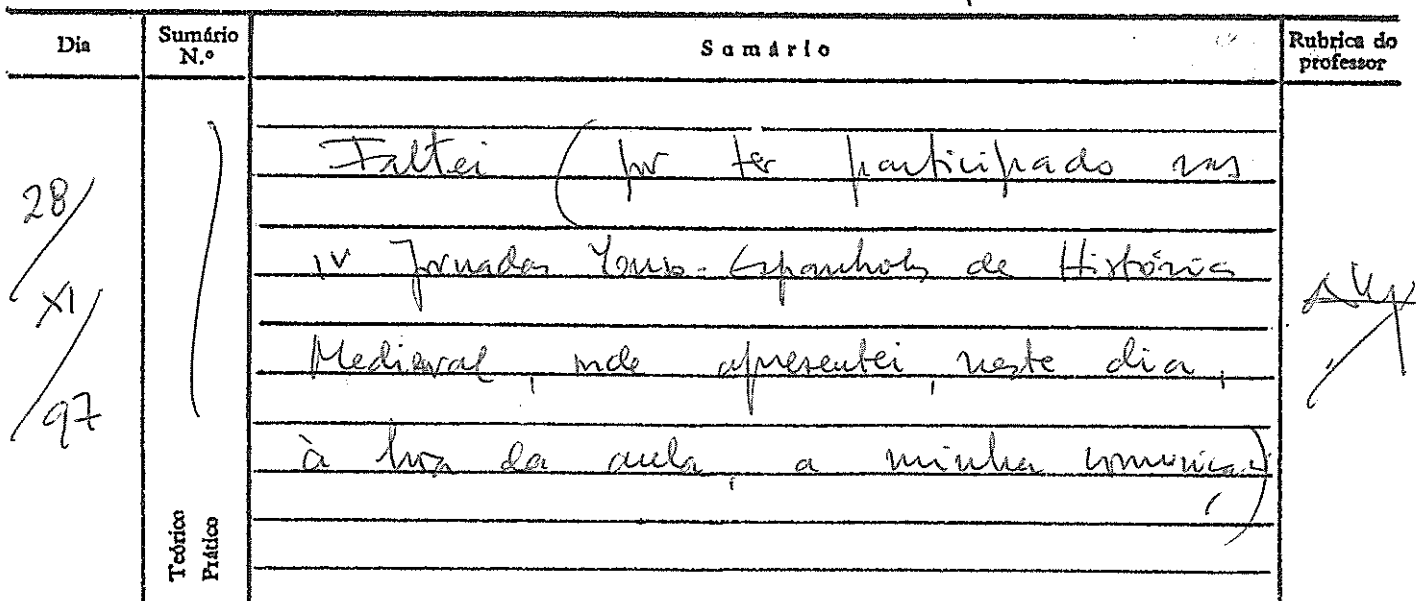 Dia
Sumário N.º
Sumário
Rubrica do professor
28/XI/97
Faltei (por ter participado nas
IV Jornadas Luso-Espanholas de História
Medieval, onde apresentei, neste dia,
à hora da aula, a minha comunicação)
Teórico
Prático